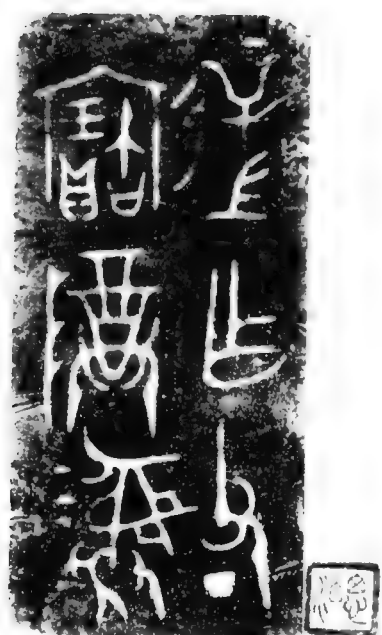 乍父丁
寶尊彝